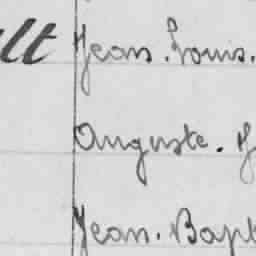 lt Jean. Louis.
Auguste. J
Jean. Bapt